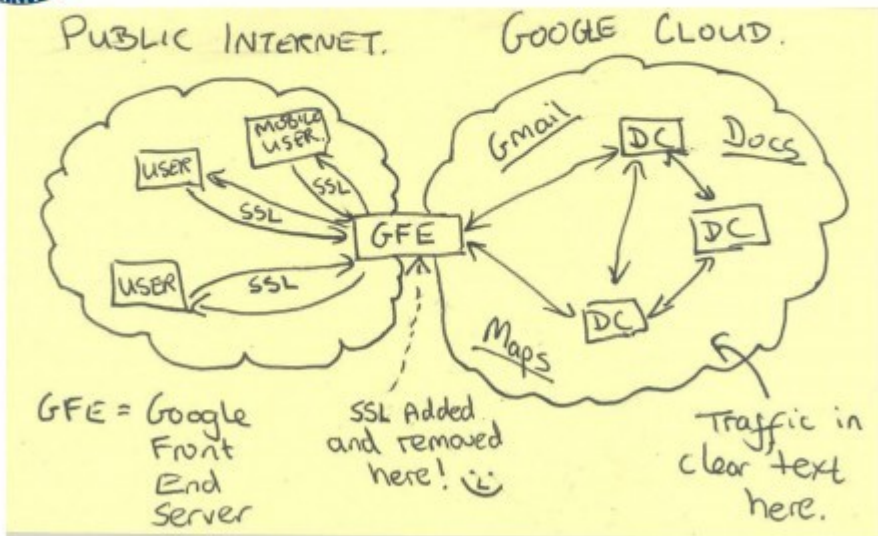 PUBLIC INTERNET.
GOOGLE CLOUD.
MOBILE
USER.
USER
SSL
SSL
GFE
USER
SSL
Gmail
DC
Docs
DC
DC
Maps
GFE = Google
Front
End
Server
SSL Added
and removed
here! ☺
Traffic in
clear text
here.